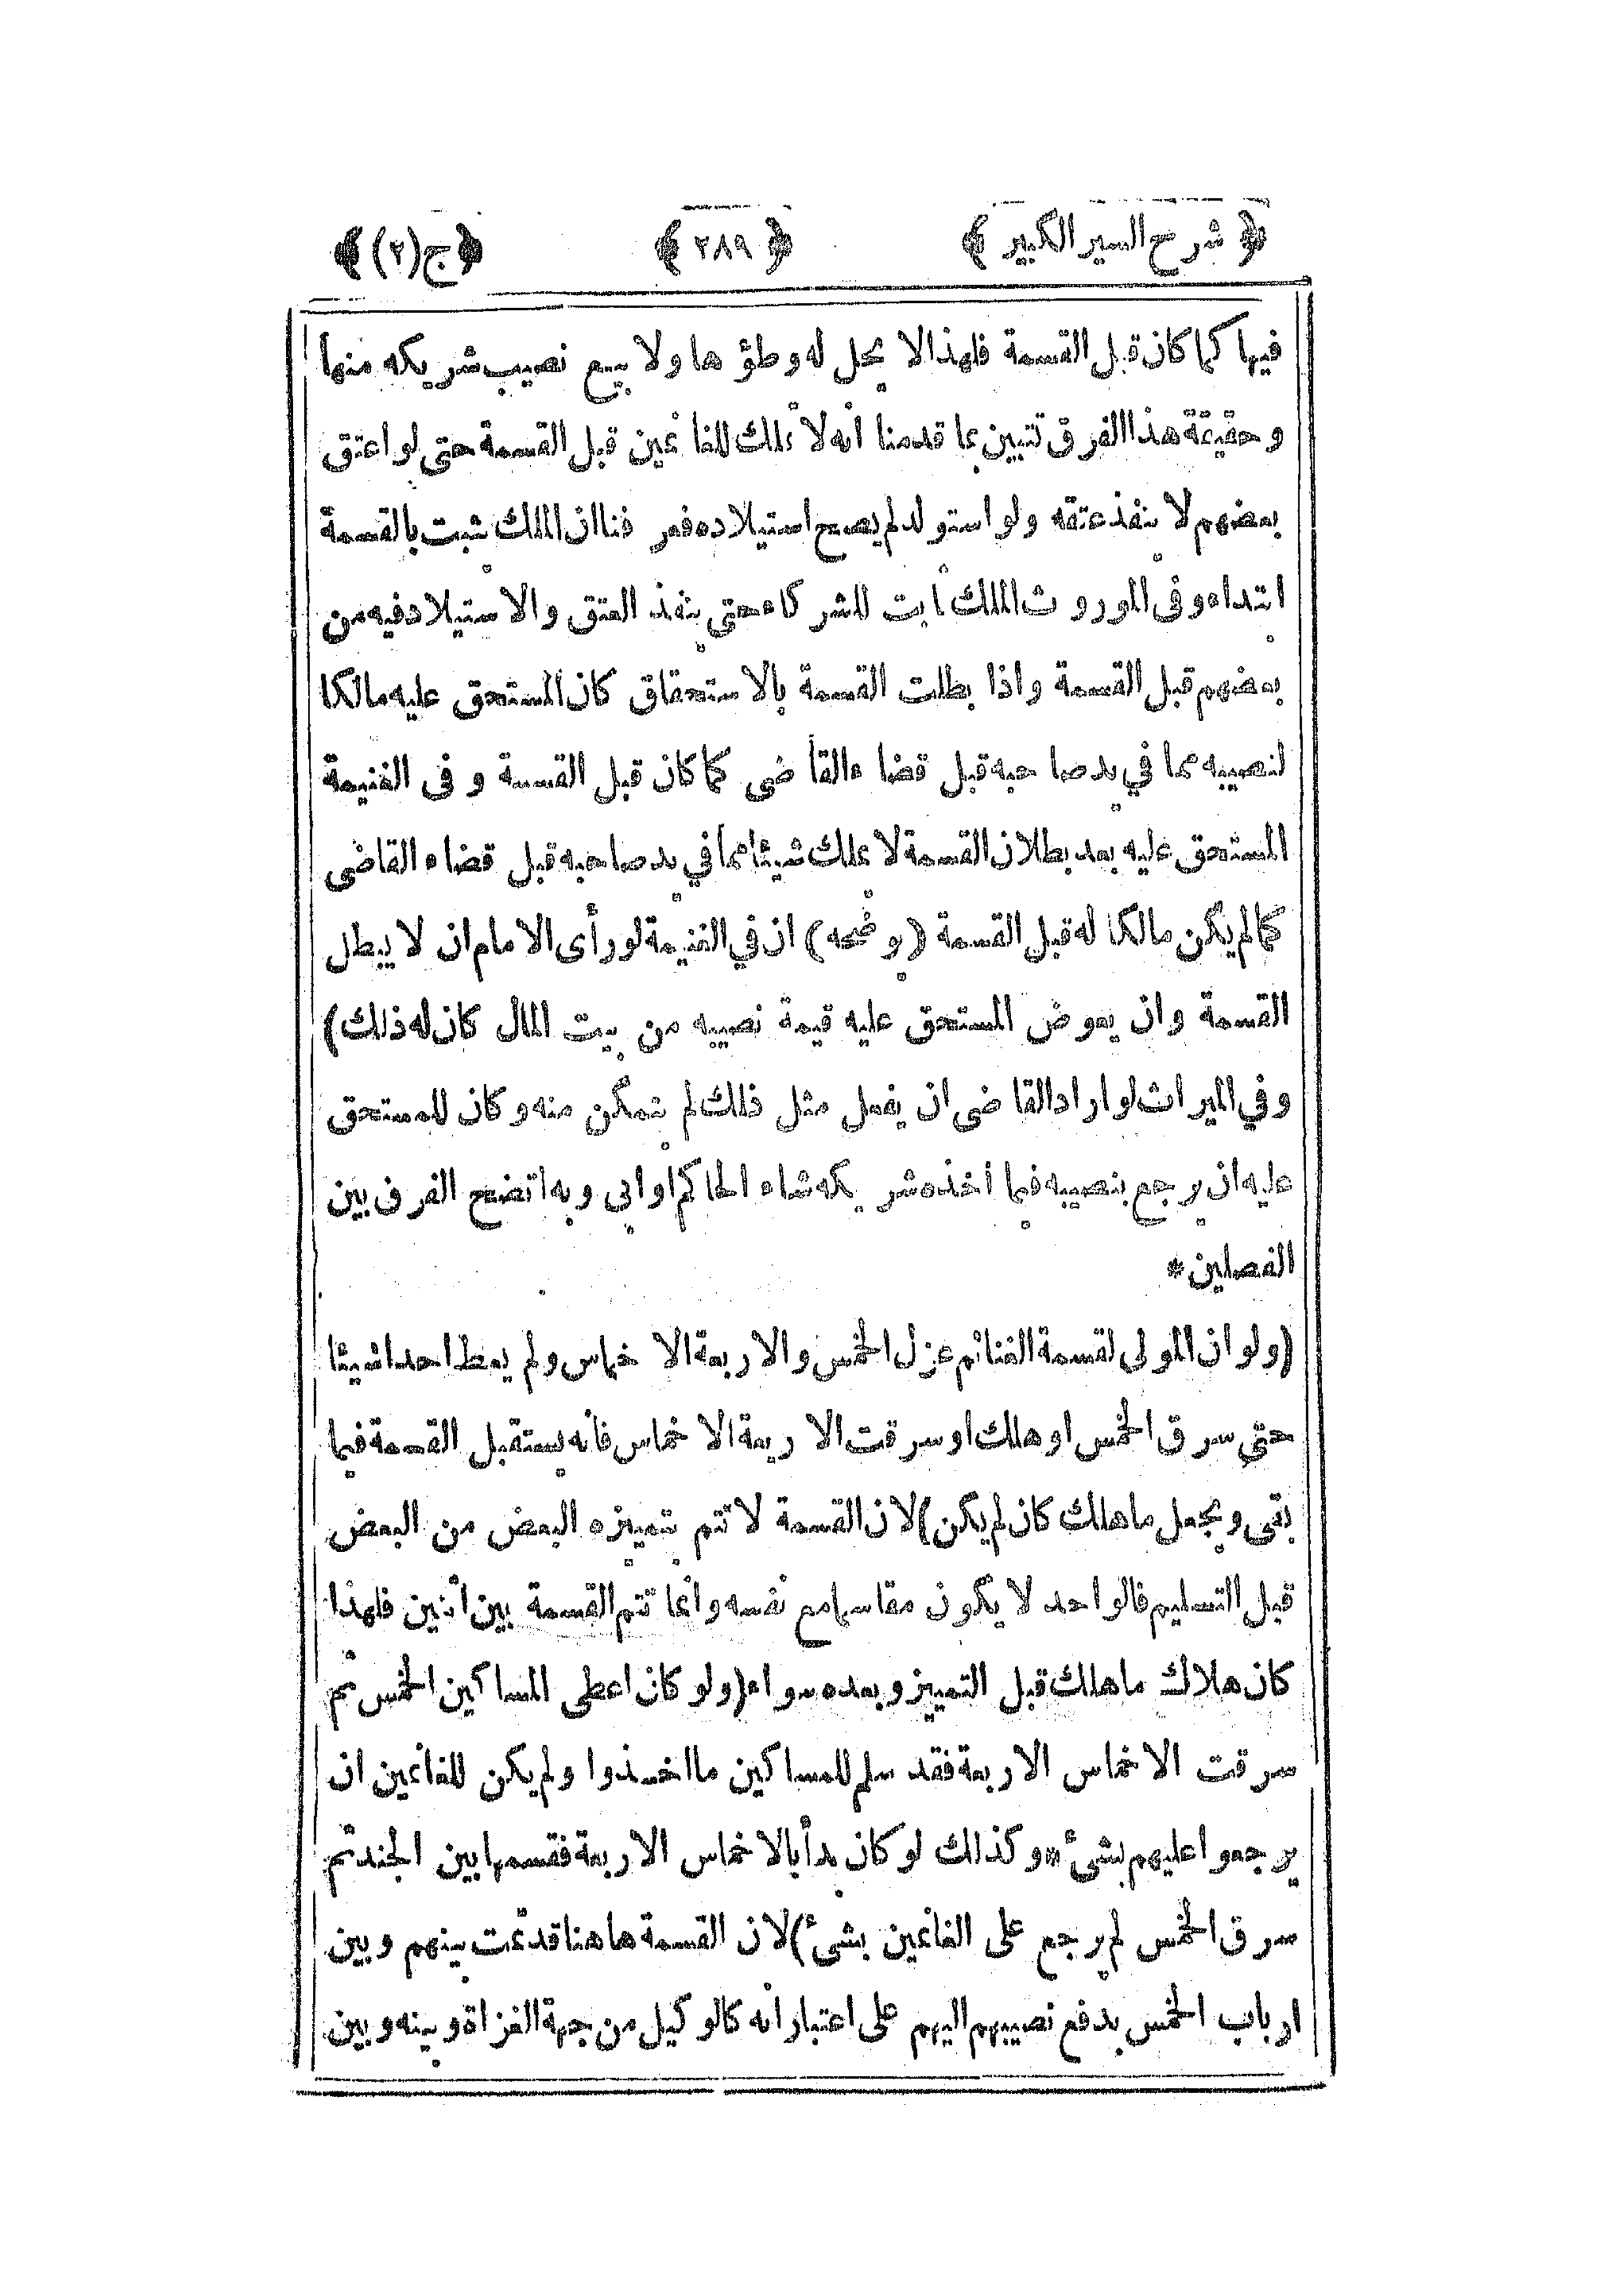 ﴿ شرح السير الكبير ﴾ ﴿ ٢٨٩ ﴾ ﴿ ج (٢) ﴾
فيها كما كان قبل القسمة فلهذا لا يحل له وطؤها ولا بيع نصيب شريكه منها
وحقيقة هذا الفرق تتبين بما قدمنا انه لا ملك للغانمين قبل القسمة حتى لو اعتق
بعضهم لا ينفذ عتقه ولو استولد لم يصح استيلاده فعرفنا ان الملك يثبت بالقسمة
ابتداء وفى الموروث الملك ثابت للشركاء حتى ينفذ العتق والاستيلاد فيه من
بعضهم قبل القسمة واذا بطلت القسمة بالاستحقاق كان المستحق عليه مالكا
لنصيبه مما في يد صاحبه قبل قضاء القاضى كما كان قبل القسمة وفى الغنيمة
المستحق عليه بعد بطلان القسمة لا يملك شيئا مما في يد صاحبه قبل قضاء القاضى
كما لم يكن مالكا له قبل القسمة (يوضحه) ان في الغنيمة لو رأى الامام ان لا يبطل
القسمة وان يعوض المستحق عليه قيمة نصيبه من بيت المال كان له ذلك)
وفي الميراث لو اراد القاضى ان يفعل مثل ذلك لم يتمكن منه وكان للمستحق
عليه ان يرجع بنصيبه فيما اخذه شريكه شاء الحاكم او ابى وبه اتضح الفرق بين
الفصلين *
(ولو ان المولى لقسمة الغنائم عزل الخمس والاربعة الاخماس ولم يعط احدا شيئا
حتى سرق الخمس او هلك او سرقت الاربعة الاخماس فانه يستقبل القسمة فيما
بقى ويجعل ما هلك كان لم يكن) لان القسمة لا تتم بتمييزه البعض من البعض
قبل التسليم فالواحد لا يكون مقاسما مع نفسه وانما تتم القسمة بين اثنين فلهذا
كان هلاك ما هلك قبل التمييز وبعده سواء (ولو كان اعطى المساكين الخمس ثم
سرقت الاخماس الاربعة فقد سلم للمساكين ما اخذوا ولم يكن للغانمين ان
يرجعوا عليهم بشئ * وكذلك لو كان بدأ بالاخماس الاربعة فقسمها بين الجند ثم
سرق الخمس لم يرجع على الغانمين بشئ) لان القسمة هاهنا قد تمت بينهم وبين
ارباب الخمس بدفع نصيبهم اليهم على اعتبار انه كالوكيل من جهة الغزاة وبينه وبين